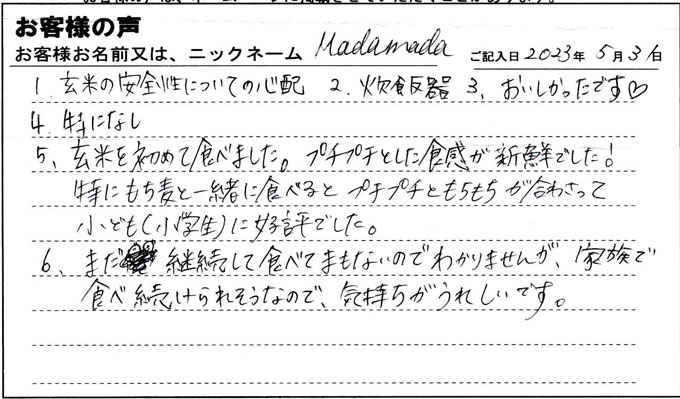 お客様の声
お客様お名前又は、ニックネーム Madamada ご記入日 2023年 5月 31日
1. 玄米の安全性についての心配 2. 炊飯器 3. おいしかったです♡
4. 特になし
5. 玄米を初めて食べました。プチプチとした食感が新鮮でした!
特にもち麦と一緒に食べるとプチプチともちもちが合わさって
小ども(小学生)に好評でした。
6. まだ 継続して食べてまもないのでわかりませんが、家族で
食べ続けられそうなので、気持ちがうれしいです。